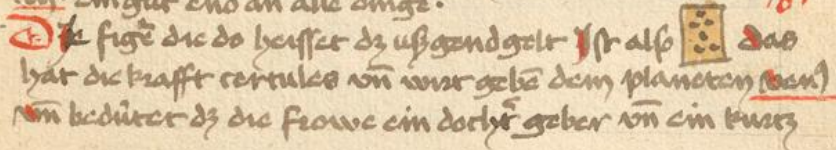 ein gut end an alle dinge.
Die figẽ die do heisset dz ußgendgelt Ist also das
hat die krafft certules vñ wirt gebẽ dem planeten
vñ bedútet dz die frowe ein docht͛ geber vñ ein kurtz